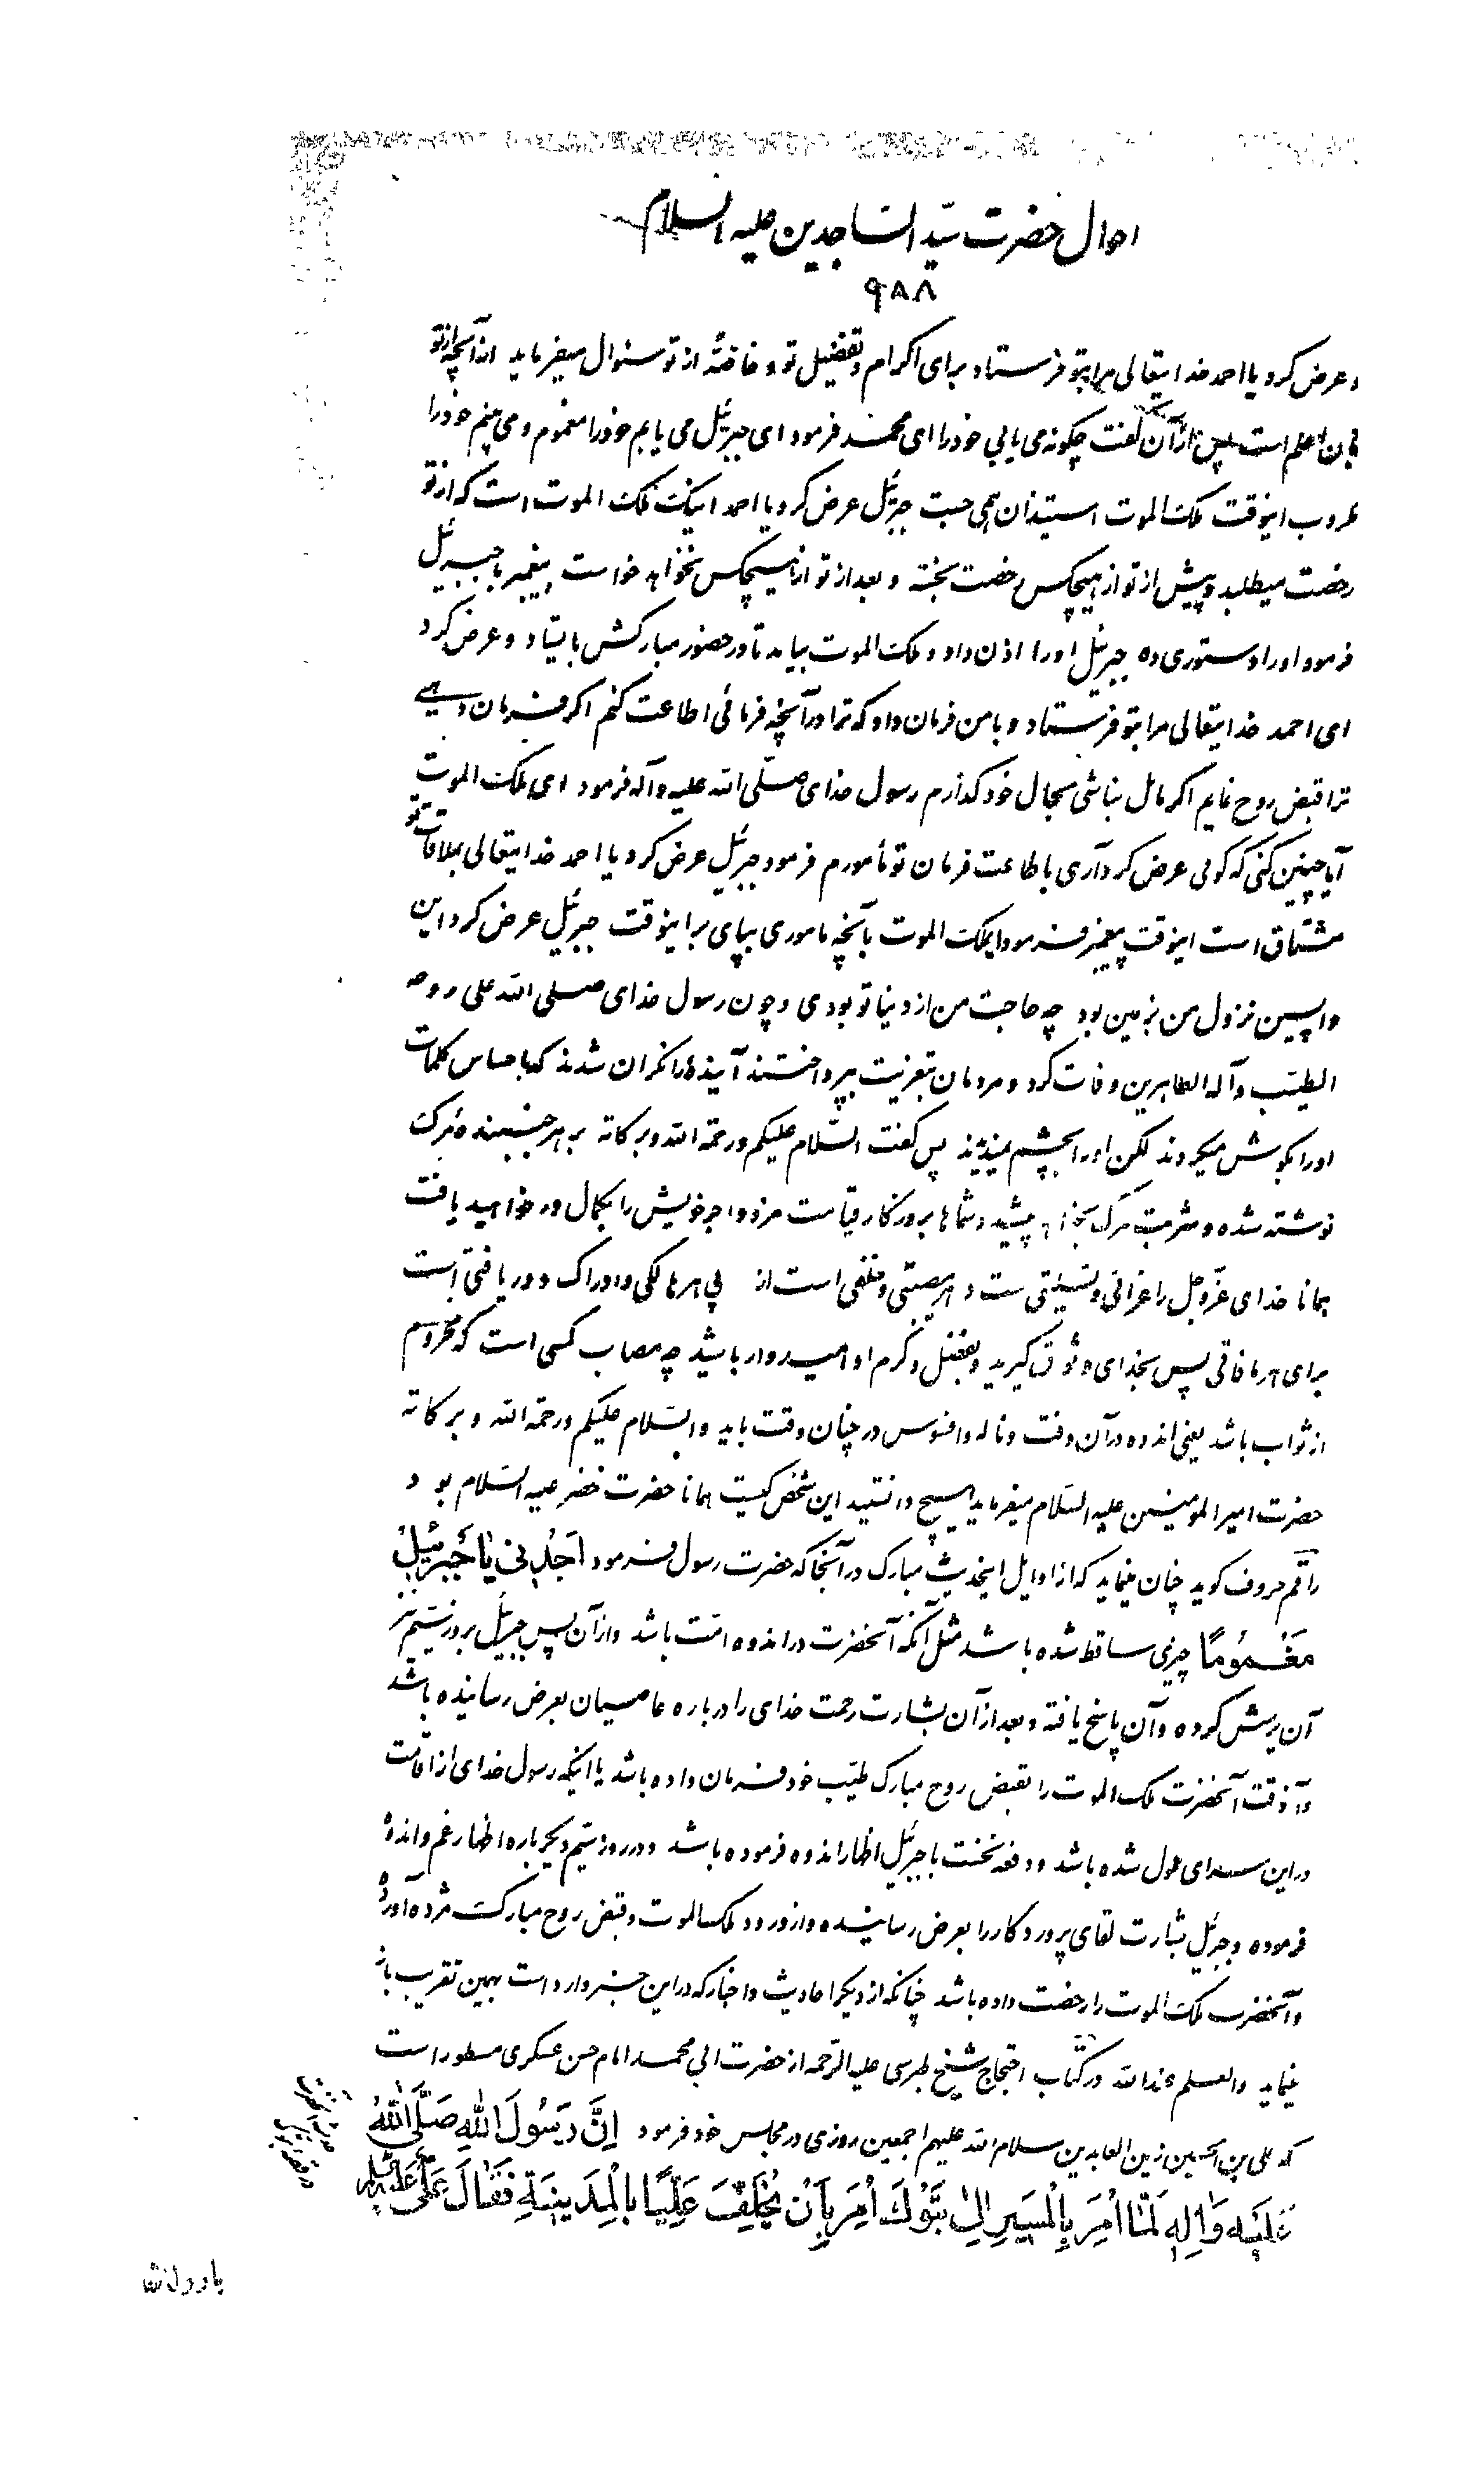 احوال حضرت سیّد السّاجدین علیه السلام
۹۸۸
و عرض کرد یا احمد خدایتعالی مرا بتو فرستاد برای اکرام و تفضیل تو و خاصّهٔ از تو سئوال میفرماید از آنچه از تو
بآن اعلم است پس از آن گفت چگونه می یابی خود را ای محمد فرمود ای جبرئیل می یابم خود را مغموم و می بینم خود را
مکروب اینوقت ملک الموت استیذان همی جست جبرئیل عرض کرد یا احمد اینک ملک الموت است که از تو
رخصت میطلبد و پیش از تو از هیچکس رخصت نجسته و بعد از تو از هیچکس نخواهد خواست پیغمبر با جبرئیل
فرمود او را دستوری ده جبرئیل او را اذن داد و ملک الموت بیامد تا در حضور مبارکش بایستاد و عرض کرد
ای احمد خدایتعالی مرا بتو فرستاد و با من فرمان داد که ترا در آنچه فرمائی اطاعت کنم اگر فرمان دهی
ترا قبض روح نمایم اگر مایل نباشی بحال خود گذارم رسول خدای صلّی الله علیه و آله فرمود ای ملک الموت
آیا چنین کنی که گوئی عرض کرد آری باطاعت فرمان تو مأمورم فرمود جبرئیل عرض کرد یا احمد خدایتعالی بملاقات تو
مشتاق است اینوقت پیغمبر فرمود ایملک الموت بآنچه ماموری بپای بر اینوقت جبرئیل عرض کرد این
واپسین نزول من بزمین بود چه حاجت من از دنیا تو بودی و چون رسول خدای صلی الله علی روحه
الطیّب و آله الطاهرین وفات کرد و مردمان بتعزیت بپرداختند آیندهٔ را نگران شدند که باحساس کلمات
او را بگوش میکردند لکن او را بچشم نمیدیدند پس گفت السّلام علیکم و رحمة الله و برکاته بر هر جنبندهٔ مرگ
نوشته شده و شربت مرگ بخواهد چشید و شما ها بروزگار قیامت مزد و اجر خویش را بکمال در خواهید یافت
همانا خدای عزّوجل را عزائی و تسلیتی ست در هر مصیبتی و خلفی است از پی هر هالکی و ادراک و دریافتی است
برای هر مافاتی پس بخدای وثوق گیرید و بفضل و کرم او امیدوار باشید چه مصاب کسی است که محروم
از ثواب باشد یعنی اندوه در آن وقت و ناله و افسوس در چنان وقت باید والسّلام علیکم و رحمة الله و برکاته
حضرت امیر المومنین علیه السّلام میفرماید هیچ دانستید این شخص کیست همانا حضرت خضر علیه السّلام بود
راقم حروف گوید چنان مینماید که از اوایل اینحدیث مبارک در آنجا که حضرت رسول فرمود اَجِدُنی یا جَبرَئیلُ
مَغْمُومًا چیزی ساقط شده باشد مثل آنکه آنحضرت در اندوه امّت باشد و از آن پس جبرئیل بروز سیّم نیز
آن پرسش کرده و آن پاسخ یافته و بعد از آن بشارت رحمت خدای را درباره عاصیان بعرض رسانیده باشد
و آنوقت آنحضرت ملک الموت را بقبض روح مبارک طیّب خود فرمان داده باشد یا اینکه رسول خدای از اقامت
در این سرای ملول شده باشد و دفعه نخست با جبرئیل اظهار اندوه فرموده باشد و در روز سیّم دیگر باره اظهار غم و اندوه
فرموده و جبرئیل بشارت لقای پروردگار را بعرض رسانیده و از ورود ملک الموت و قبض روح مبارکت مژده آورده
و آنحضرت ملک الموت را رخصت داده باشد چنانکه از دیگر احادیث و اخبار که در این خبر وارد است بهمین تقریب باز
نماید والعلم عندالله در کتاب احتجاج شیخ طبرسی علیه الرّحمه از حضرت ابی محمد امام حسن عسکری مسطور است
که علی بن الحسین زین العابدین سلام الله علیهم اجمعین روزی در مجلس خود فرمود اِنَّ رَسُولَ اللهِ صَلَّی اللهُ
عَلَیْهِ وَآلِهِ لَمّا اُمِرَ بِالْمَسیرِ اِلیٰ تَبُوکَ اُمِرَ بِاَنْ یُخَلِّفَ عَلِیًّا بِالْمَدینَةِ فَقالَ عَلِیٌّ عَلَیْهِ السَّلام